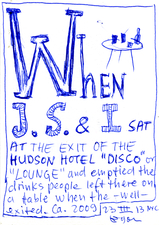 WHEN
J.S. & I SAT
AT THE EXIT OF THE
HUDSON HOTEL "DISCO" or
"LOUNGE" and emptied the
drinks people left there on
a table when the -well-
exited. Ca. 2009 23 III 13 NYC